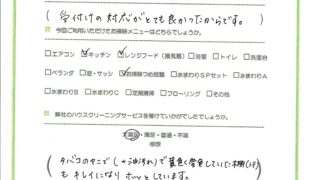 (受付けの対応がとても良かったからです。)
今回ご利用いただいたお掃除メニューはどちらでしょうか。
□エアコン ☑キッチン ☑レンジフード(換気扇) □浴室 □トイレ □洗面台
□ベランダ □窓・サッシ ☑お掃除つめ放題 □水まわりSPセット □水まわりA
□水まわりB □水まわりC □定期清掃 □フローリング □その他
弊社のハウスクリーニングサービスを受けていかがでしたでしょうか。
大満足・満足・普通・不満
感想
タバコのヤニで(+油汚れ)で黄色く変色していた棚
もキレイになりホッとしています。